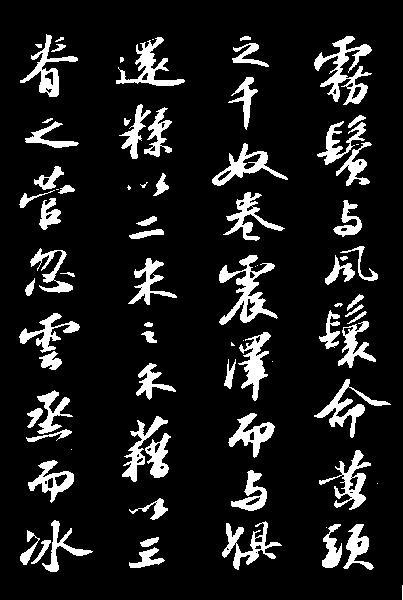 霧鬢与風鬟命黄頭
之千奴卷震澤而与俱
還糅以二米之禾藉以三
脊之菅忽雲烝而冰